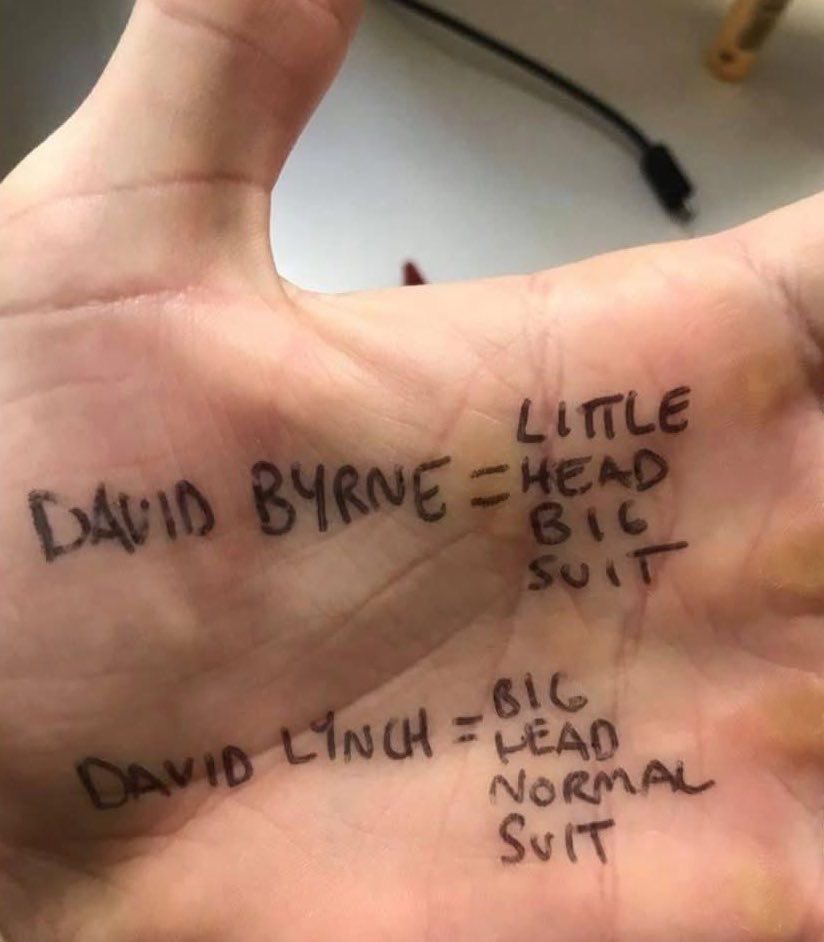 LITTLE
DAVID BYRNE = HEAD
BIG
SUIT
BIG
DAVID LYNCH = HEAD
NORMAL
SUIT